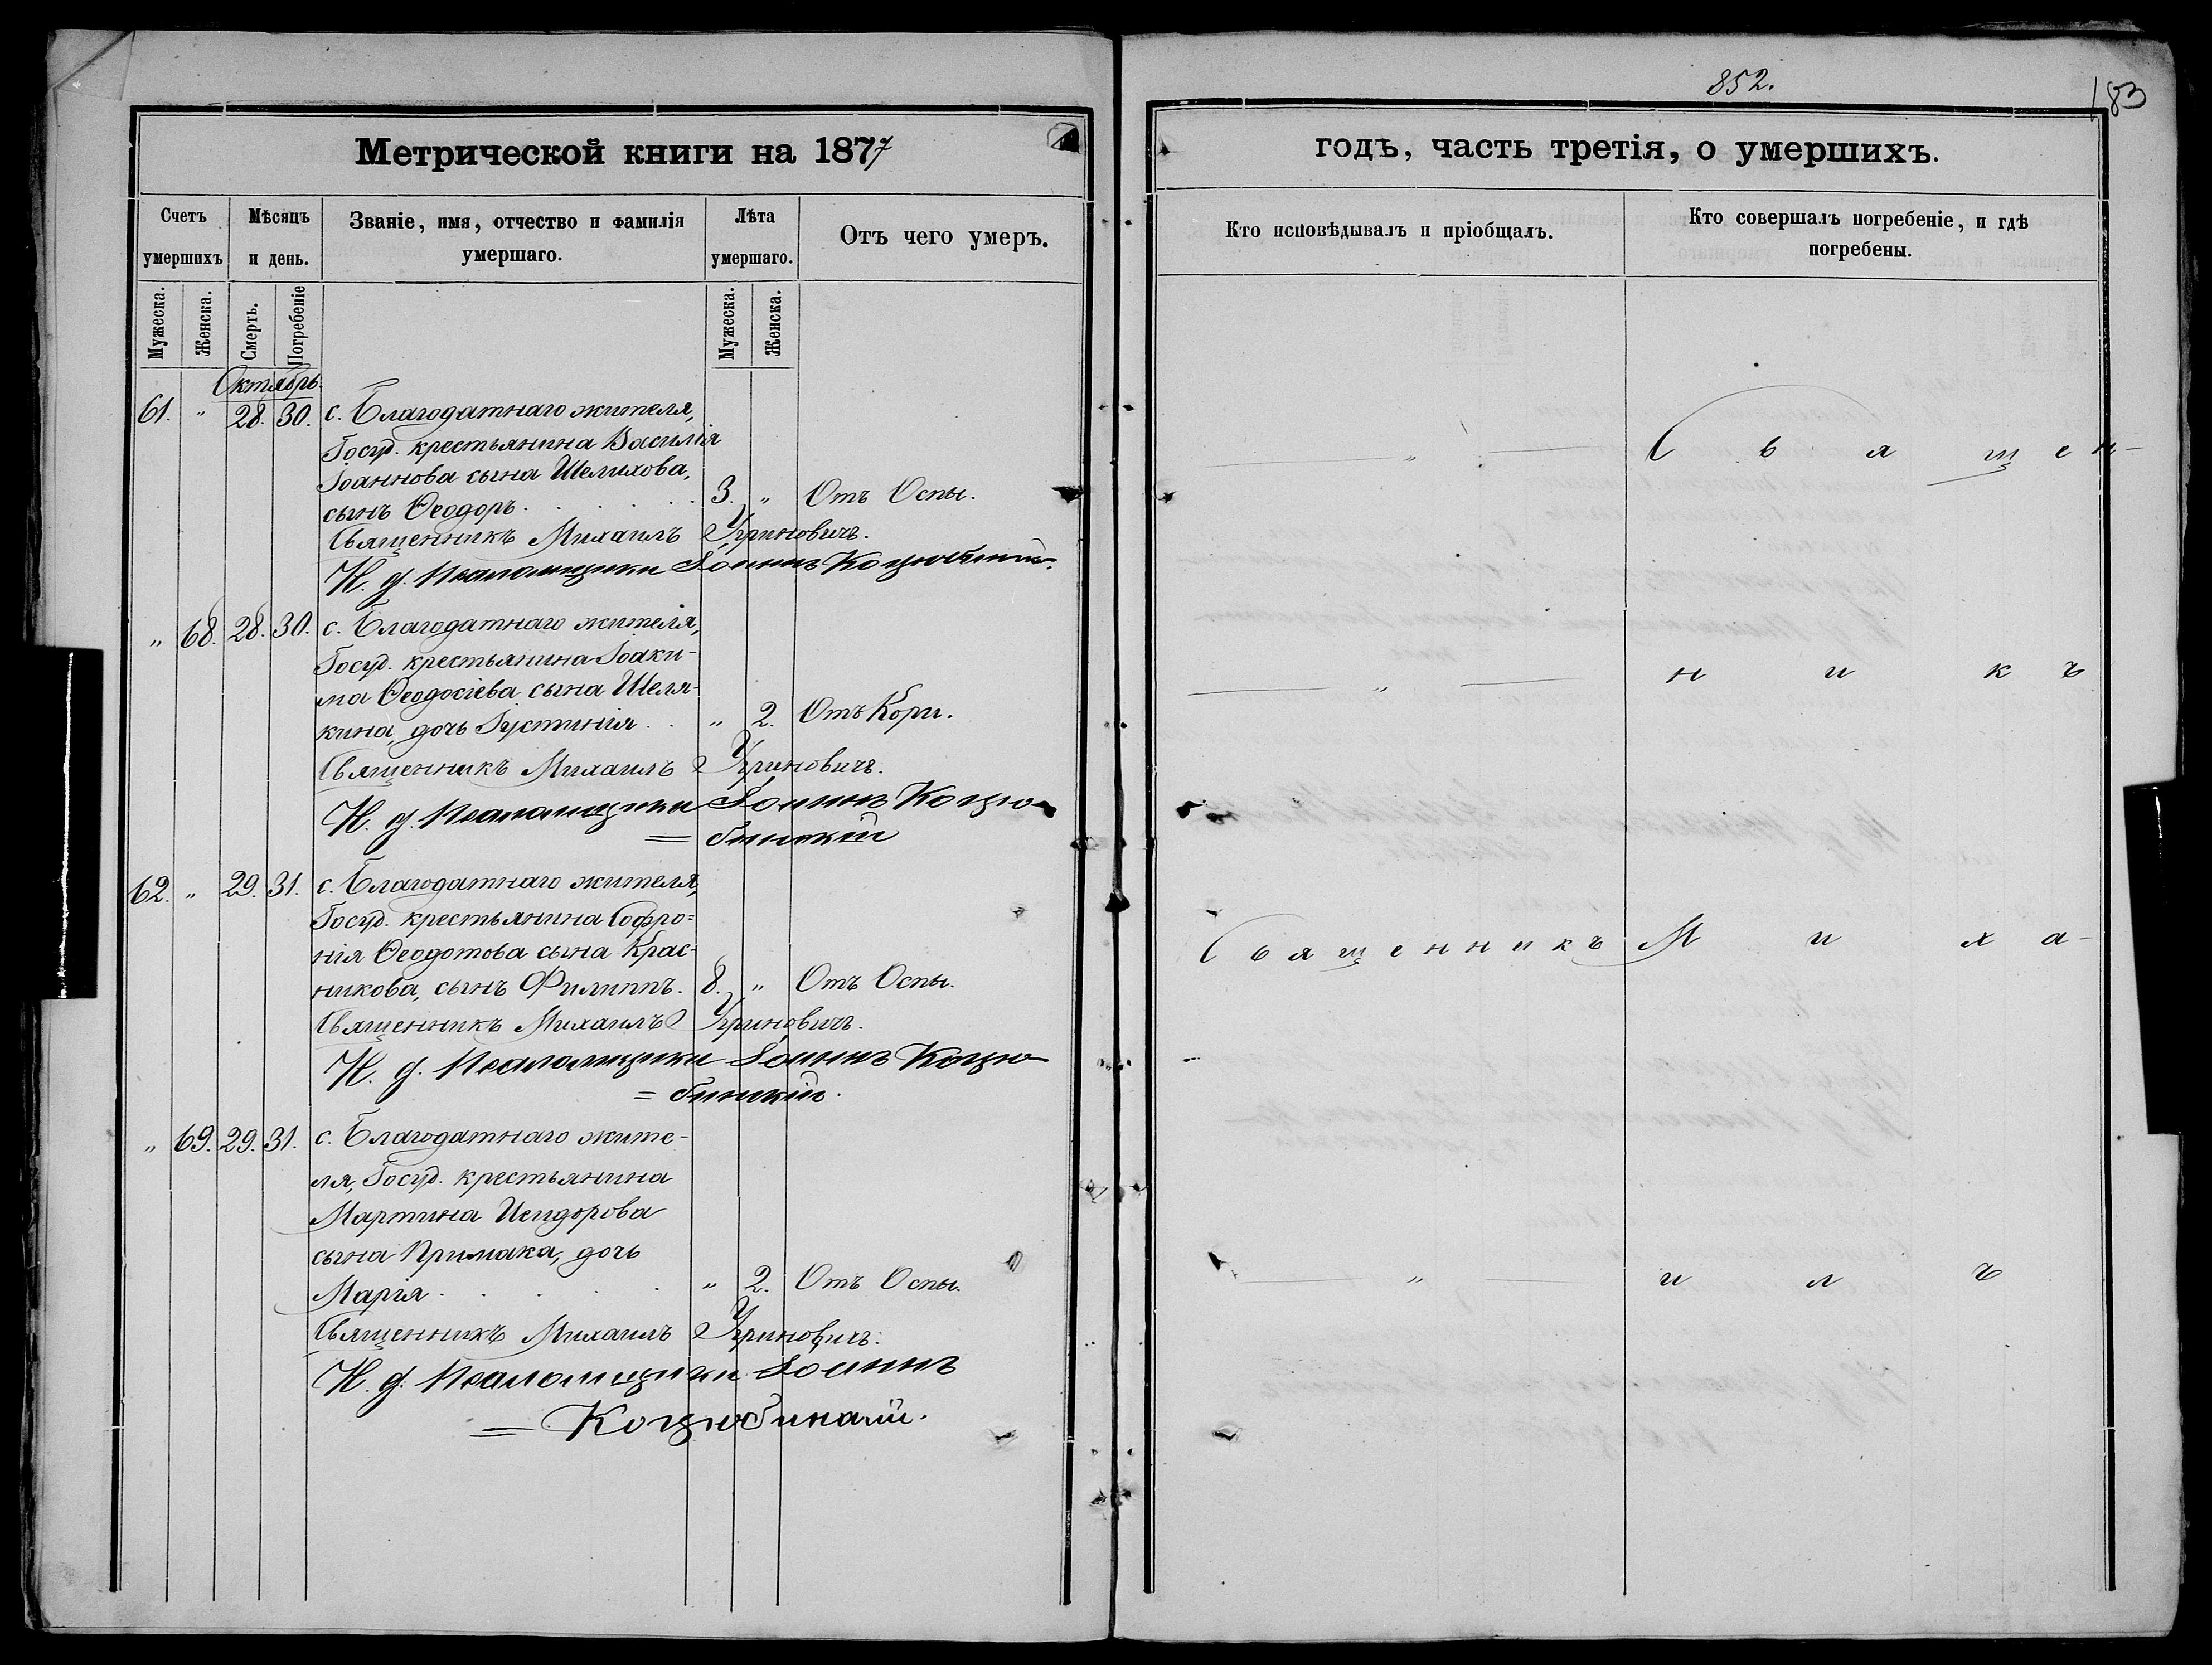 852.
183
Метрической книги на 1877
годъ, часть третія, о умершихъ.
Счетъ умершихъ
Мѣсяцъ и день.
Званіе, имя, отчество и фамилія умершаго.
Лѣта умершаго.
Отъ чего умеръ.
Кто исповѣдывалъ и пріобщалъ.
Кто совершалъ погребеніе, и гдѣ погребены.
Мужеска.
Женска.
Смерть.
Погребеніе
Мужеска.
Женска.
Октябрь.
61. „ 28. 30. с. Благодатнаго жителя,
Госуд. крестьянина Василія
Іоаннова сына Шелихова,
сынъ Ѳеодоръ. 3. „ Отъ Оспы.
Священникъ Михаилъ Угриновичъ.
И. д. Псаломщика Іоаннъ Коцюбинскій.
„ 68. 28. 30. с. Благодатнаго жителя,
Госуд. крестьянина Іоаки-
ма Ѳеодосіева сына Шеля-
кина, дочь Іустинія. „ 2. Отъ Кори.
Священникъ Михаилъ Угриновичъ.
И. д. Псаломщика Іоаннъ Коцю-
= бинскій
62. „ 29. 31. с. Благодатнаго жителя,
Госуд. крестьянина Софро=
нія Ѳеодотова сына Крас-
никова, сынъ Филиппъ. 8. „ Отъ Оспы.
Священникъ Михаилъ Угриновичъ.
И. д. Псаломщика Іоаннъ Коцю-
= бинскій.
„ 69. 29. 31. с. Благодатнаго жите-
ля, Госуд. крестьянина
Мартина Исидорова
сына Примака, дочь
Марія. „ 2. Отъ Оспы.
Священникъ Михаилъ Угриновичъ.
И. д. Псаломщика Іоаннъ
= Коцюбинскій.
„ Священ-
„ никъ
Священникъ Миха-
„ илъ